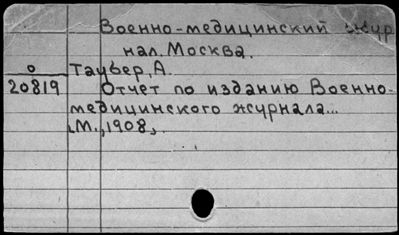 Военно-медицинский жур
нал. Москва.
о
20819
Таубер, А.
Отчет по изданию Военно-
медицинского журнала...
М., 1908.